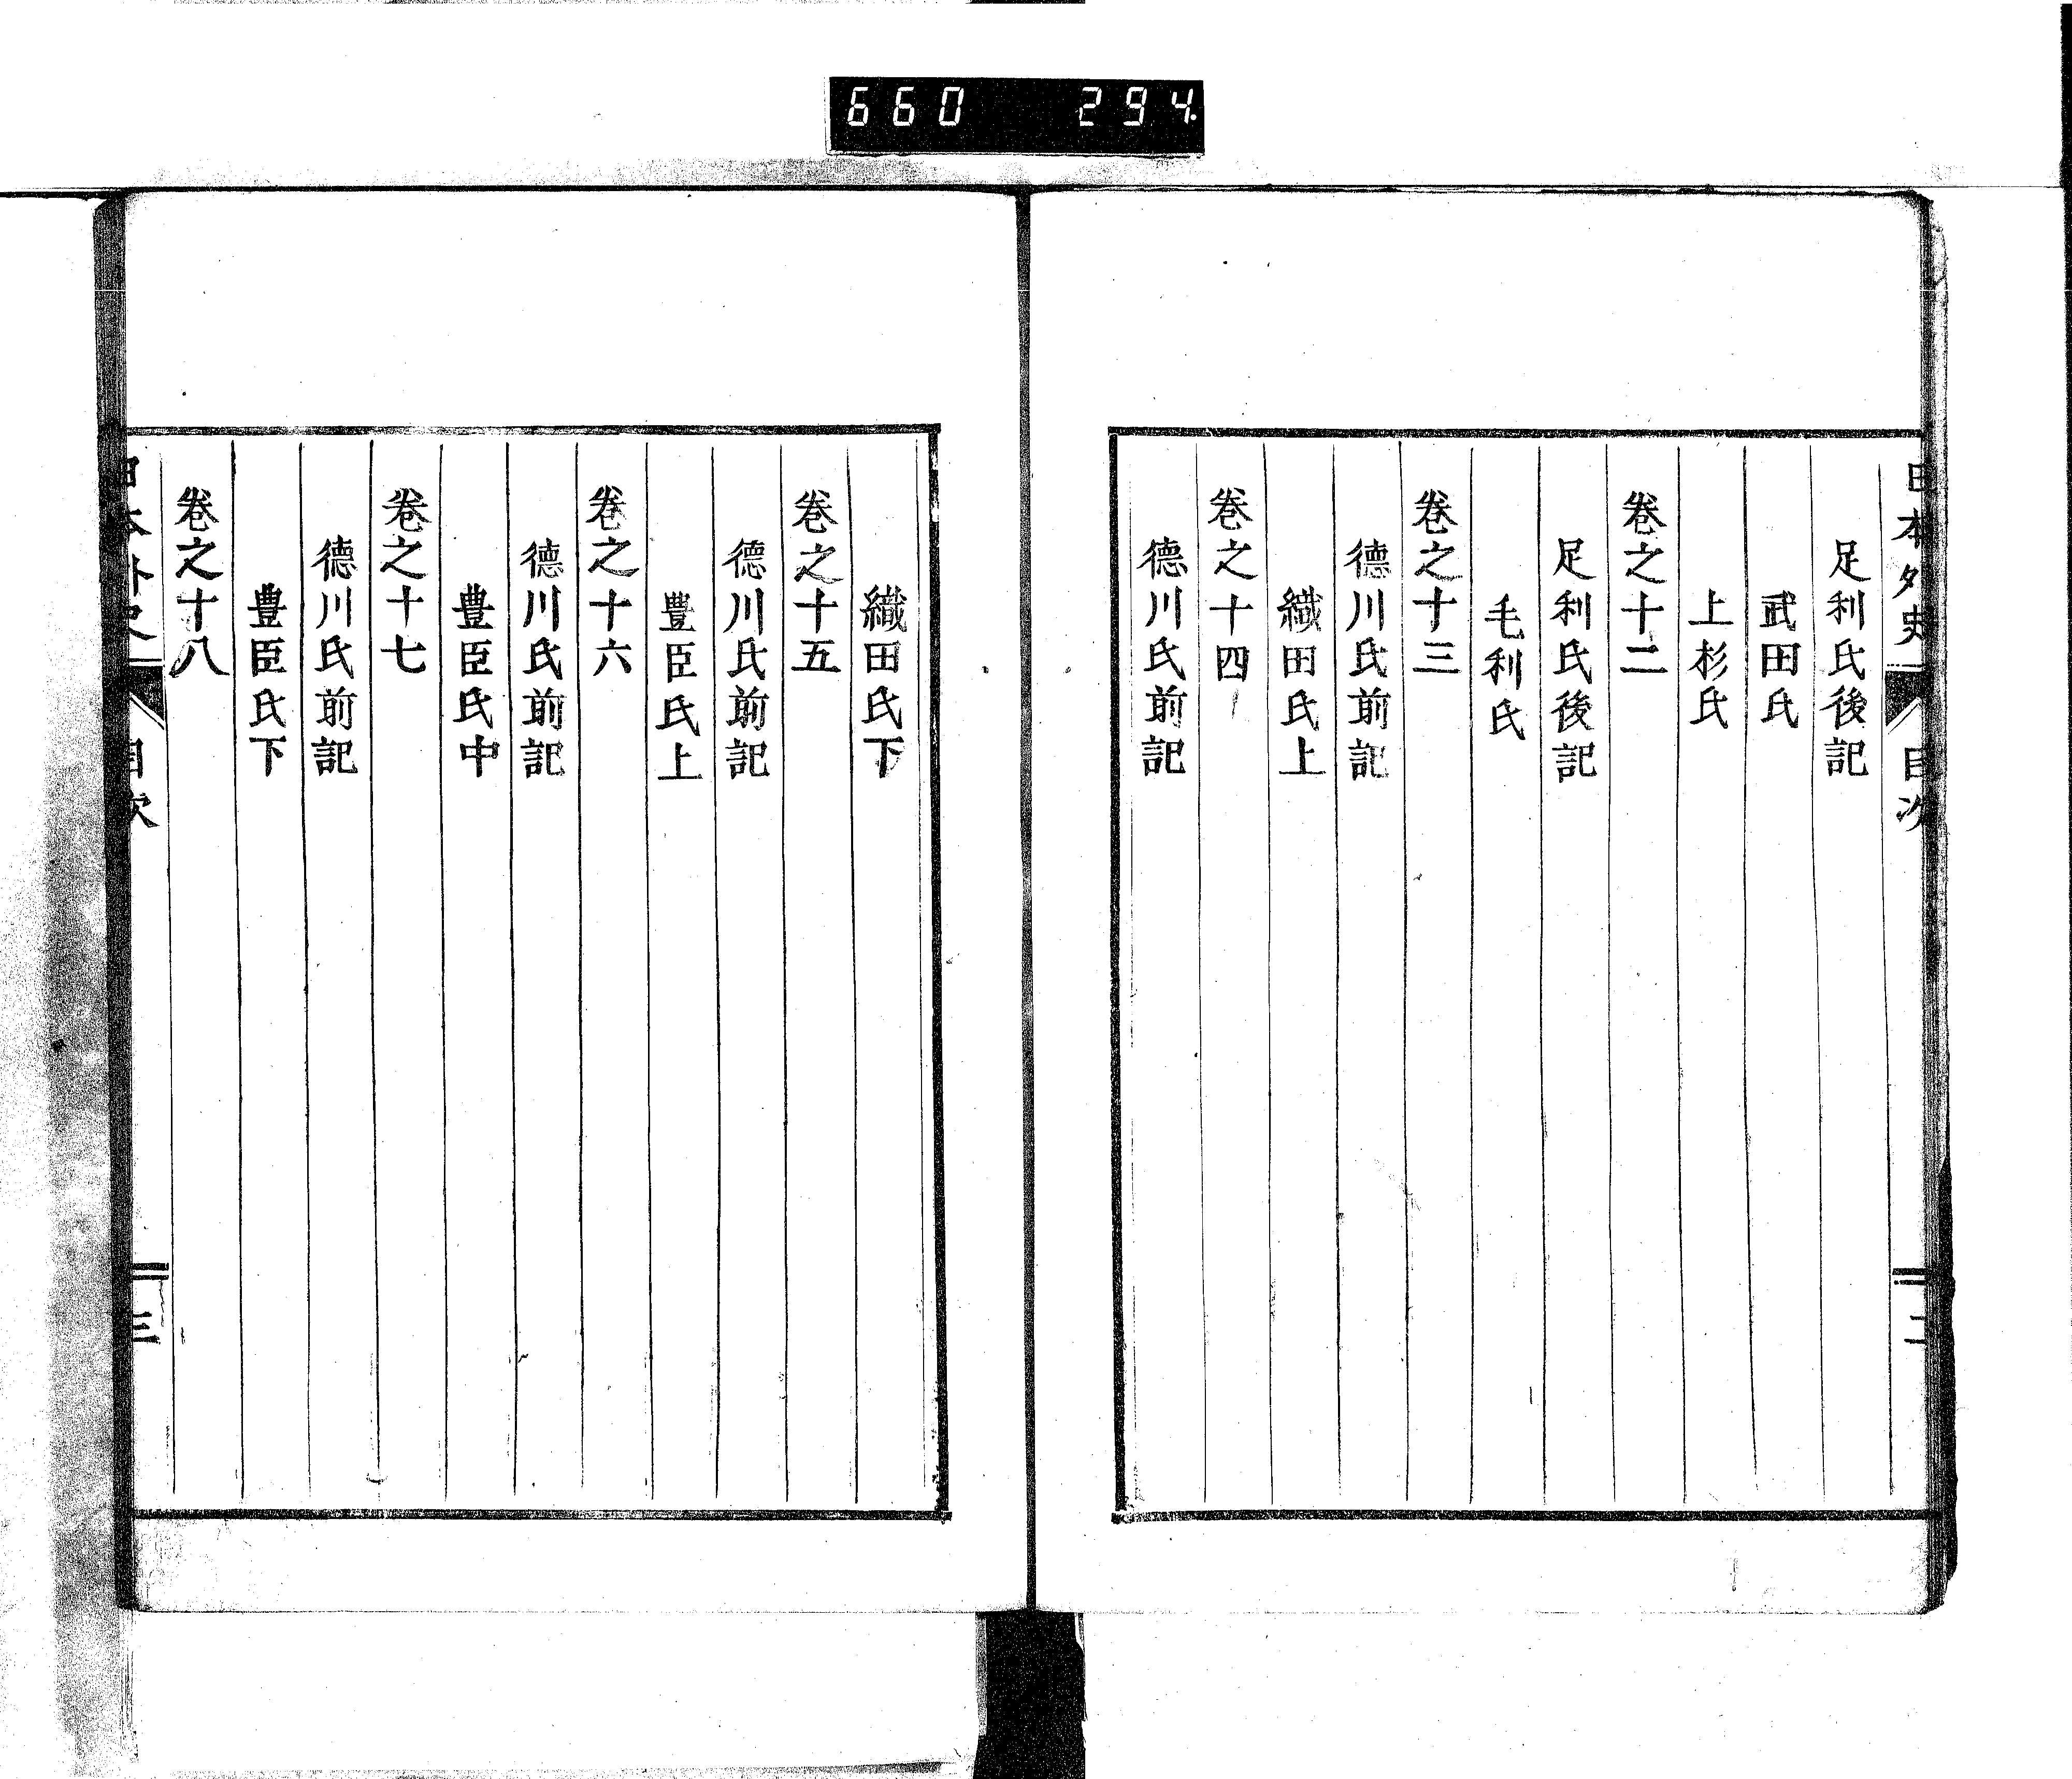 660 294.
日本外史 目次 二
足利氏後記
武田氏
上杉氏
卷之十二
足利氏後記
毛利氏
卷之十三
德川氏前記
織田氏上
卷之十四
德川氏前記
織田氏下
卷之十五
德川氏前記
豊臣氏上
卷之十六
德川氏前記
豊臣氏中
卷之十七
德川氏前記
豊臣氏下
卷之十八
日本外史 目次 三